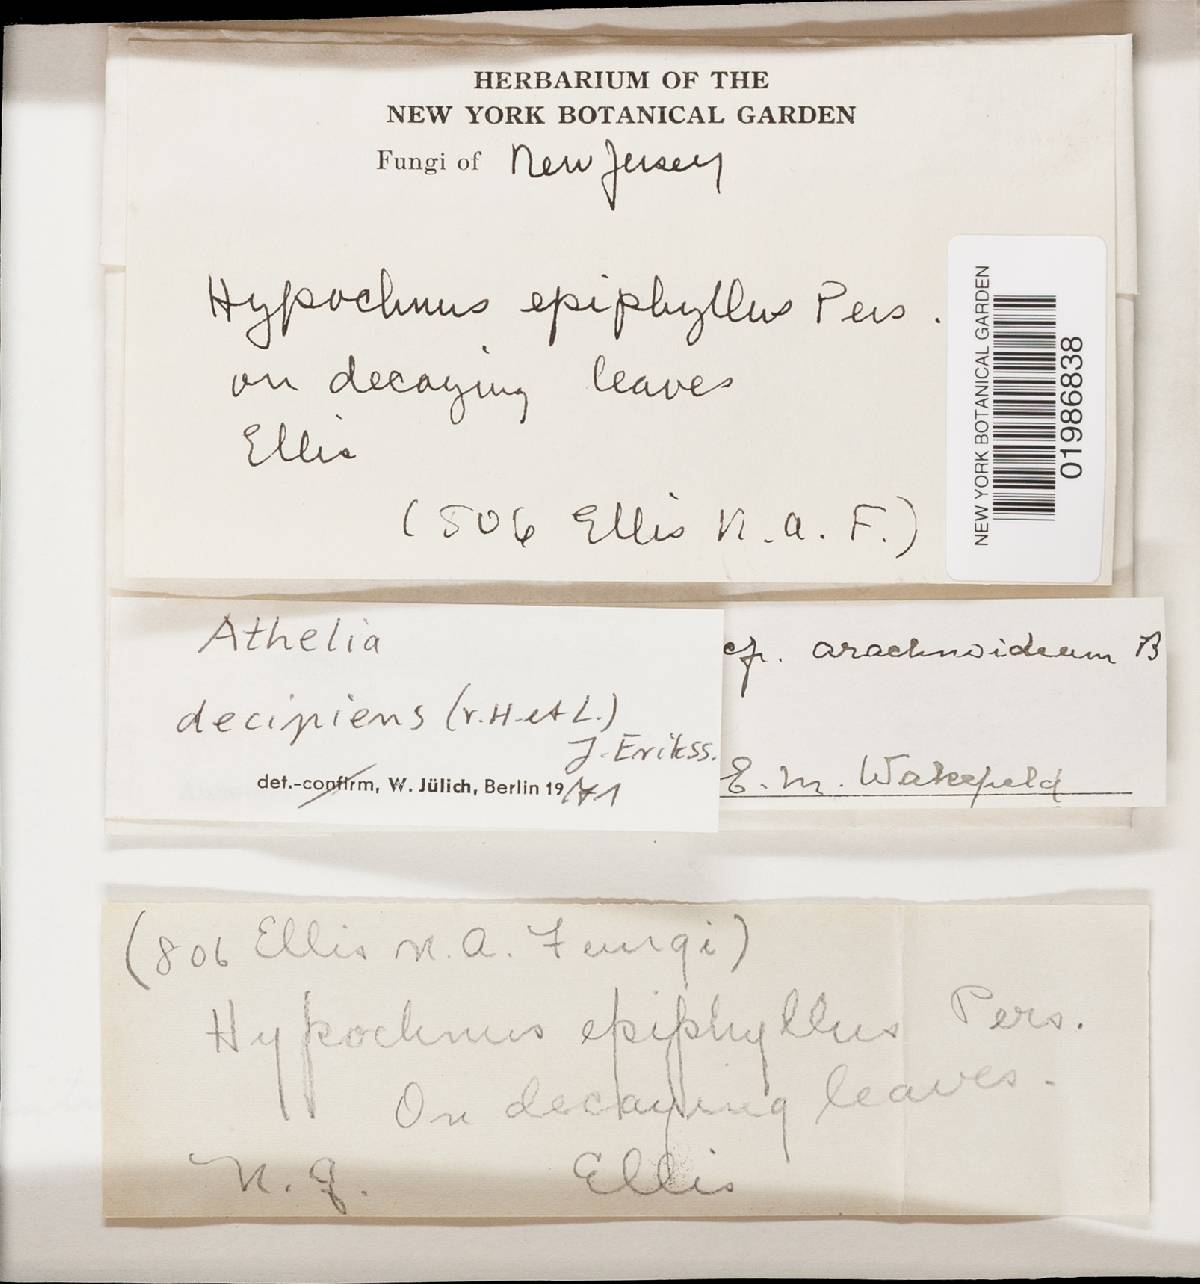 HERBARIUM OF THE
NEW YORK BOTANICAL GARDEN
Fungi of New Jersey
Hypochnus epiphyllus Pers.
on decaying leaves
Ellis
(806 Ellis N.A.F.)
NEW YORK BOTANICAL GARDEN
01986838
Athelia
decipiens (v.H. et L.)
J. Erikss.
det.-confirm, W. Jülich, Berlin 19
cf. arachnoideum B
E. M. Wakefield
(806 Ellis N.A. Fungi)
Hypochnus epiphyllus Pers.
On decaying leaves.
N.J. Ellis